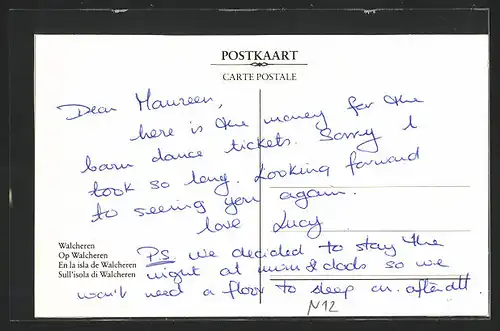 POSTKAART
CARTE POSTALE
Dear Maureen,
here is the money for the
barn dance tickets. Sorry I
took so long. Looking forward
to seeing you again.
love Lucy
P.S we decided to stay the
night at mum & dads so we
won't need a floor to sleep on. after all.
Walcheren
Op Walcheren
En la isla de Walcheren
Sull'isola di Walcheren
N12